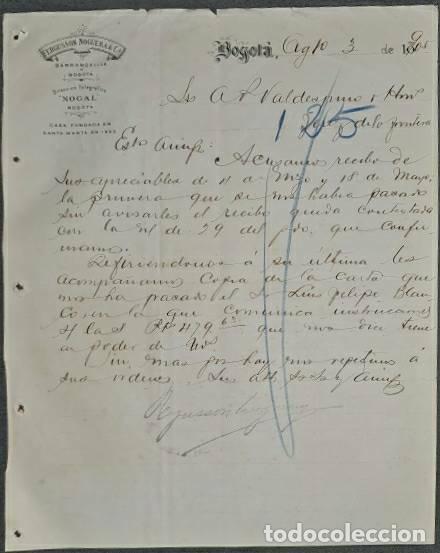 FERGUSSON NOGUERA & Cª
BARRANQUILLA
BOGOTA
Dirección Telegráfica
"NOGAL"
BOGOTA
CASA FUNDADA EN
SANTA MARTA EN 1855
Bogotá, Agto 3 de 1
Sr A R Valdespino y Hno
135
Jerez de la frontera
Acusamos recibo de
sus apreciables de 4 de Mzo y 18 de Mayo,
la primera que se nos habia pasado
sin avisarles el recibo queda contestada
con la de 29 del pdo, que confir
mamos.
Refiriéndonos á su última les
acompañamos copia de la carta que
nos ha pasado el Sr Luis Felipe Blan
Co, en la que comunica instrucciones
que nos dice tiene
en poder de Uds
Sin mas por hoy nos repetimos á
sus ordenes,
todocoleccion.net